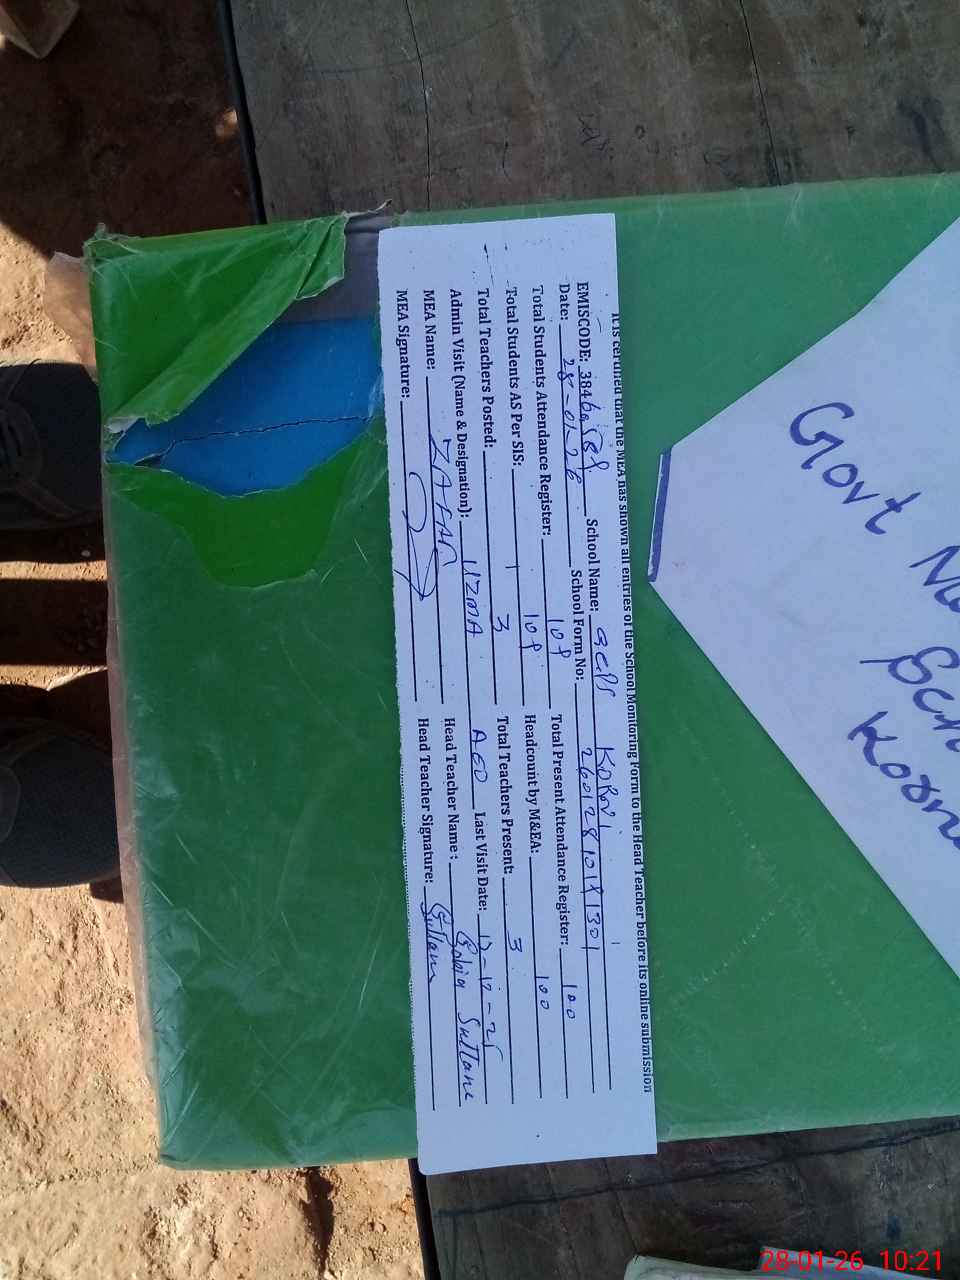 It is certified that the MEA has shown all entries of the School Monitoring Form to the Head Teacher before its online submission
EMISCODE: 384 School Name: GGPS KORRI
Date: 28-01-26 School Form No: 260128101
Total Students Attendance Register: 108 Total Present Attendance Register: 100
Total Students AS Per SIS: 108 Headcount by M&EA: 100
Total Teachers Posted: 3 Total Teachers Present: 3
Admin Visit (Name & Designation): UZMA AEO Last Visit Date: 12-12-25
MEA Name: ZAFAR Head Teacher Name: Sultana
MEA Signature: Head Teacher Signature: Sultana
Govt
28-01-26 10:21